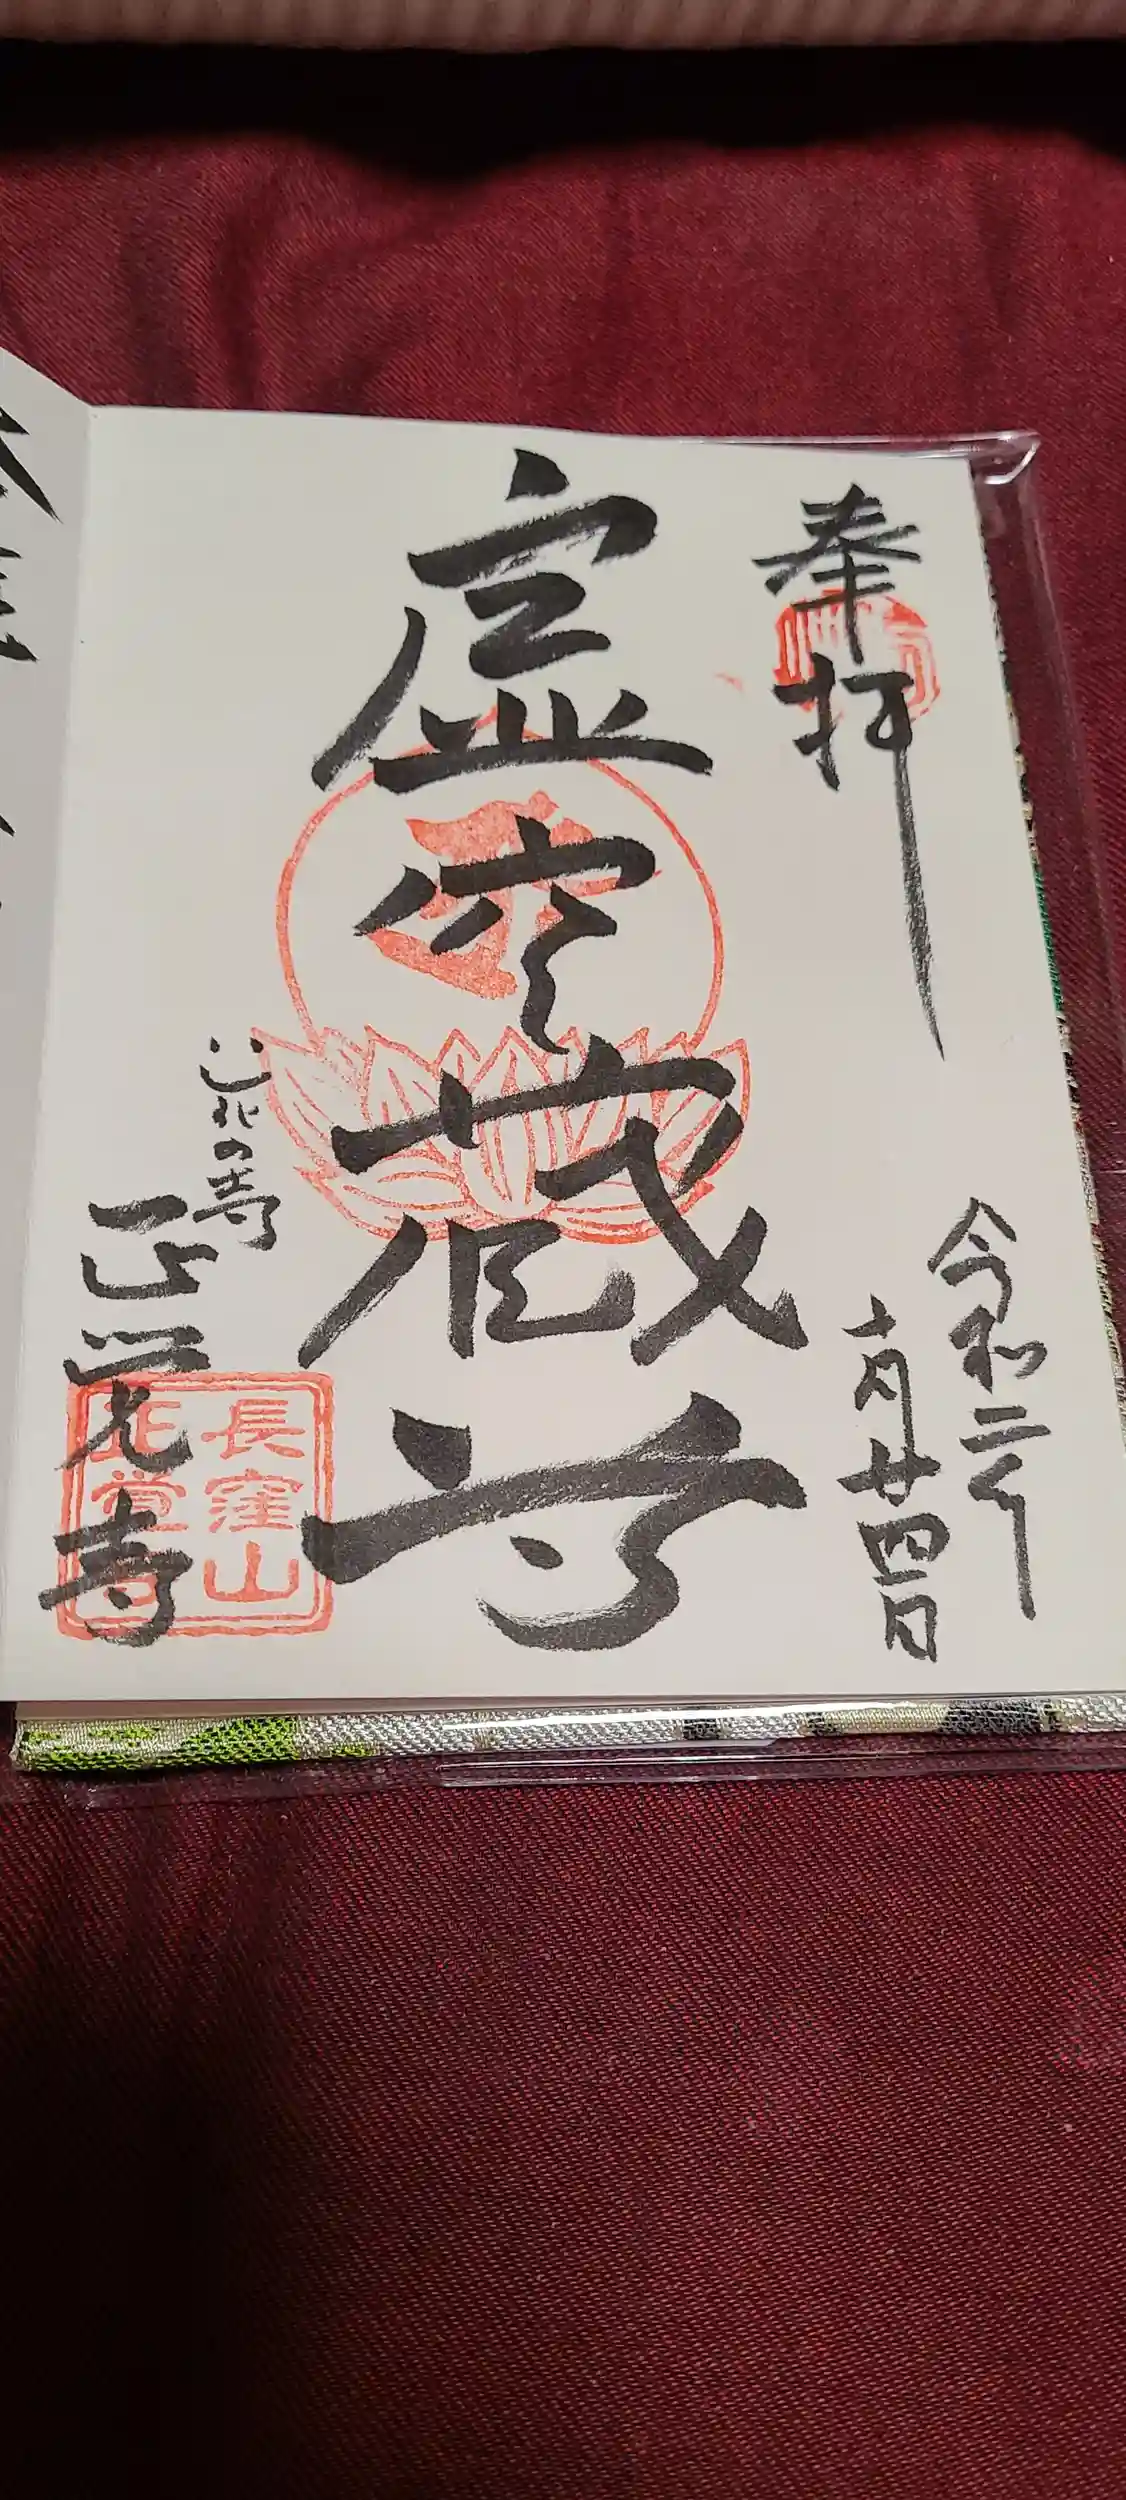 奉拝
令和二年
十月廿四日
虚空蔵尊
花の寺
正覚寺
長窪山
正覚寺